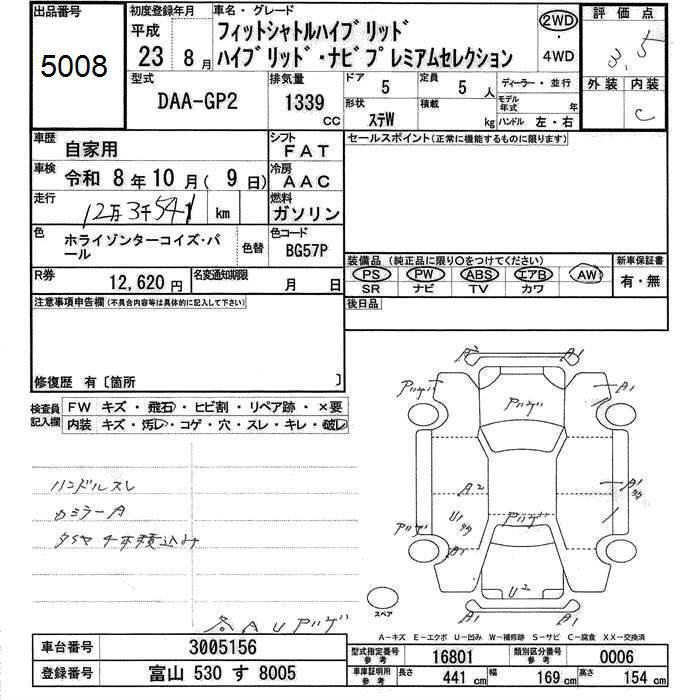 出品番号
5008
初度登録年月
平成
23 8 月
車名・グレード
フィットシャトルハイブリッド
ハイブリッド・ナビプレミアムセレクション
2WD
4WD
評価点
3.5
外装 内装
C
型式
DAA-GP2
排気量
1339
CC
ドア
5
定員
5 人
形状
ステW
積載
kg
ディーラー・並行
モデル年式 年
ハンドル 左・右
車歴
自家用
シフト
FAT
車検
令和 8 年 10 月 ( 9 日)
冷房
AAC
走行
12万3千541 km
燃料
ガソリン
色
ホライゾンターコイズ・パ
ール
色替
色コード
BG57P
R券
12,620 円
名変通知期限
月 日
セールスポイント(正常に機能するものに限ります)
装備品 (純正品に限り〇をつけてください)
新車保証書
PS PW ABS エアB AW
SR ナビ TV カワ
有・無
後日品
注意事項申告欄(不具合内容等は具体的に記入して下さい)
修復歴 有〔箇所 〕
検査員
記入欄
FW キズ・飛石・ヒビ割・リペア跡・×要
内装 キズ・汚レ・コゲ・穴・スレ・キレ・破レ
ハンドルスレ
カミラーA
タイヤ4本積込み
各AUアリゲ
A2 A1
アリゲ
アリゲ
A1
A2
A1
U1
アリゲ
アリゲ
A1
U2
A1 A1
スペア
A-キズ E-エクボ U-凹み W-補修跡 S-サビ C-腐食 XX-交換済
車台番号
3005156
登録番号
富山 530 す 8005
型式指定番号
参考
16801
類別区分番号
参考
0006
車庫証明記入
参考
長さ 441 cm
幅 169 cm
高さ 154 cm